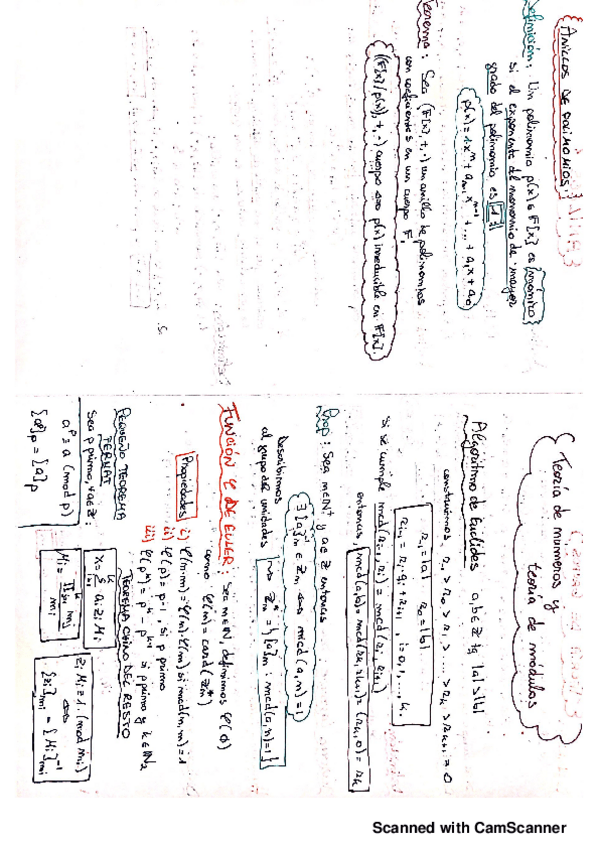 ANILLOS DE POLINOMIOS
Definición: Un polinomio p(x) ∈ F[x] es mónico
si el exponente del monomio de mayor
grado del polinomio es 1.
p(x) = 1·xⁿ + aₙ₋₁xⁿ⁻¹ + ... + a₁x + a₀
Teorema: Sea (F[x], +, ·) un anillo de polinomios
con coeficientes en un cuerpo F,
((F[x]/p(x)), +, ·) cuerpo ⟺ p(x) irreducible en F[x].
Teoría de números y
teoría de módulos
Algoritmo de Euclides a, b ∈ Z tq |a| > |b|
construimos r₁ > r₀ > r₁ > ... > rₖ > rₖ₊₁ = 0
r₋₁ = |a| r₀ = |b|
rᵢ₋₁ = rᵢ·qᵢ + rᵢ₊₁, i = 0, 1, ..., k.
si se cumple mcd(rᵢ₋₁, rᵢ) = mcd(rᵢ, rᵢ₊₁)
entonces mcd(a, b) = mcd(rₖ, rₖ₊₁) = (rₖ, 0) = rₖ
Prop: Sea m ∈ N⁺ y a ∈ Z entonces
∃ [a]ₘ⁻¹ ∈ Zₘ ⟺ mcd(a, m) = 1
Describimos
al grupo de unidades → Zₘ* = {[a]ₘ : mcd(a, m) = 1}
FUNCIÓN φ DE EULER: Sea m ∈ N, definimos φ(ϕ)
como φ(m) = card(Zₘ*)
Propiedades i) φ(n·m) = φ(n)·φ(m) si mcd(n, m) = 1
ii) φ(p) = p-1, si p primo
iii) φ(pᵏ) = pᵏ - pᵏ⁻¹ si p primo y k ∈ N
PEQUEÑO TEOREMA
FERMAT
Sea p primo, ∀a ∈ Z:
aᵖ ≡ a (mod p)
[aᵖ]p = [a]p
TEOREMA CHINO DEL RESTO